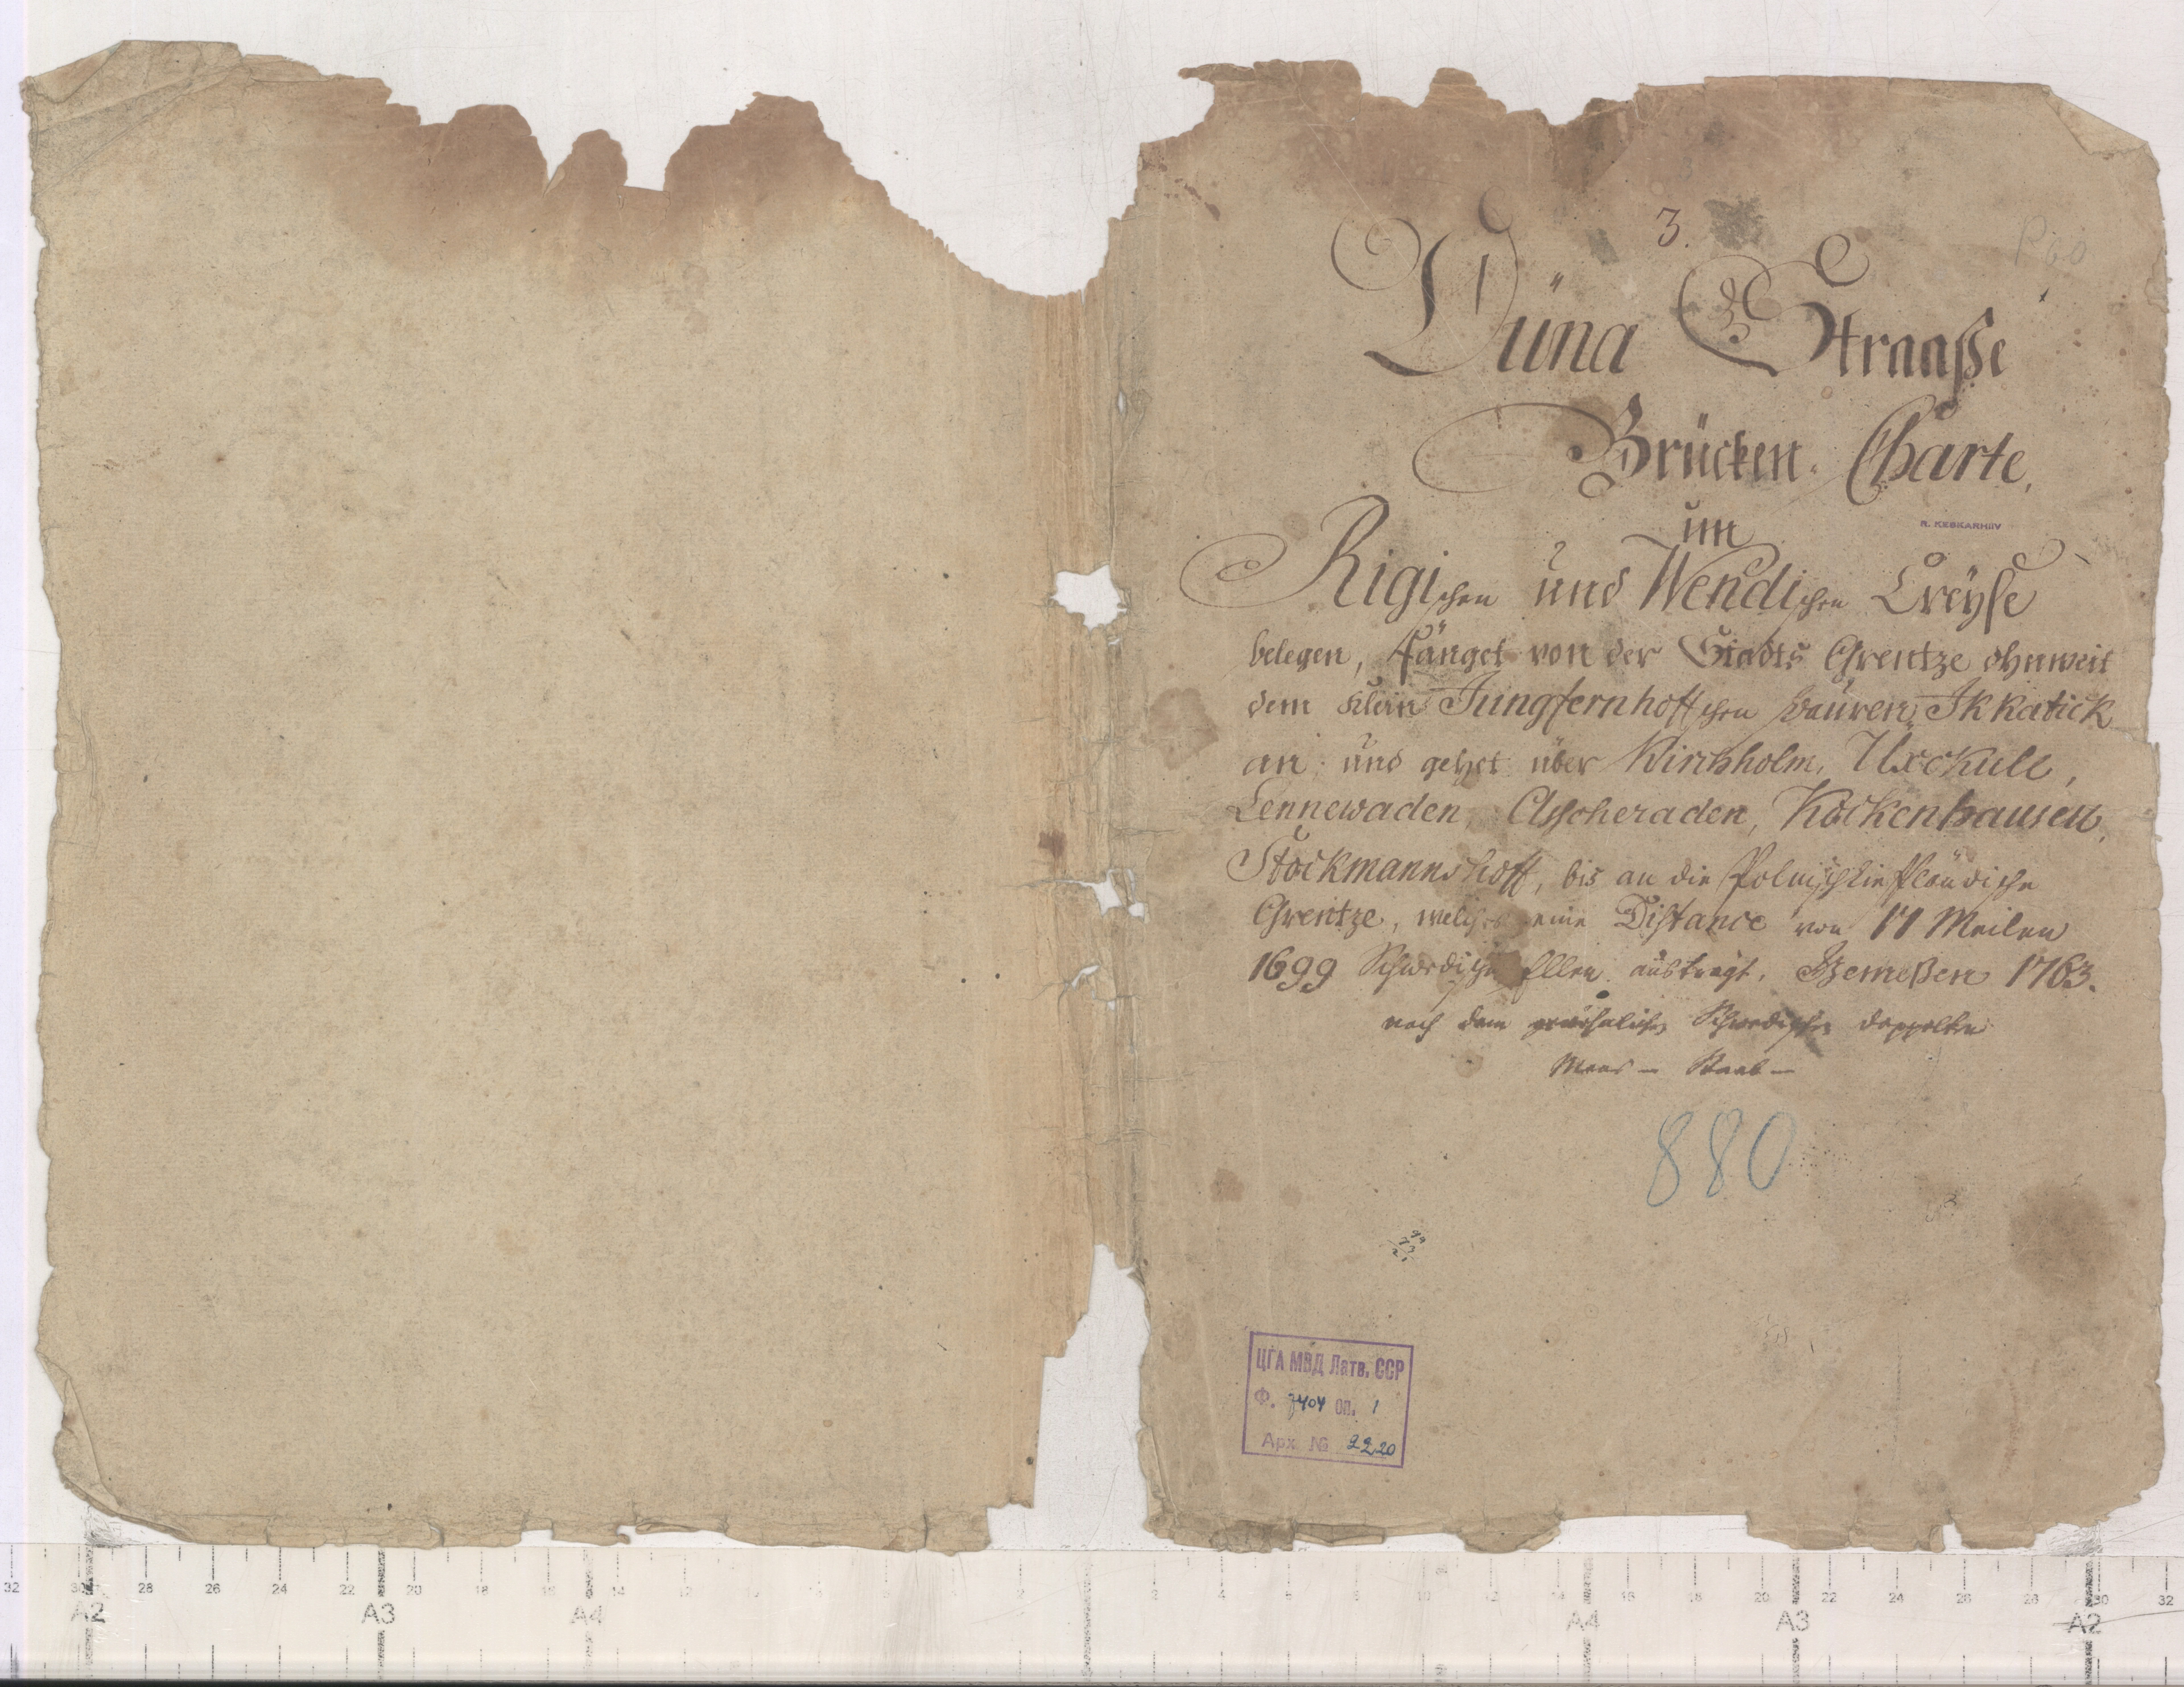 3.
Düna Straaße
Brücken-Charte,
im
R. KESKARHIIV
Rigischen und Wendischen Creyse
belegen, Fänget von der Stadts Grentze ohnweit
dem klein Jungfernhoffschen bauren Ikkatick
an, und gehet über Kirchholm, Uxckull,
Lennewaden, Ascheraden, Kockenhausen,
Stockmannshoff, bis an die Polnisch Lieffländische
Grentze, welches eine Distance von 17 Meilen
1699 Schwedische Ellen austrägt. Gemeßen 1763.
nach dem gewöhnlichen Schwedischen doppelten
Maas- Staab-
880
ЦГА МВД Латв. ССР
Ф. 7404 оп. 1
Арх № 2220